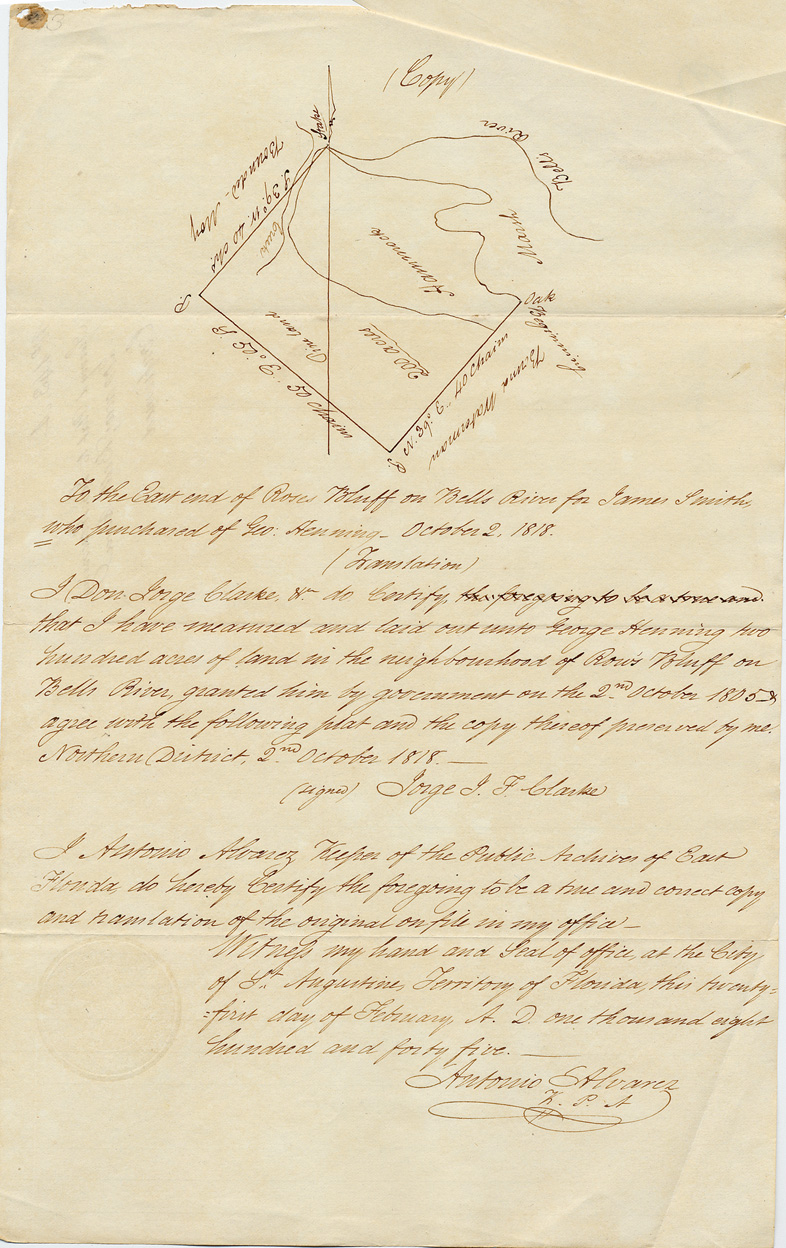 (Copy)
Bells River
Stake
Bounded Moy
S. 39.° W. 40 chs.
Creek
Marsh
Hammock
Oak
Beginning
P.
Pine land
200 acres
S. 50.° E. 50 Chains
N. 39.° E. 40 Chains
P.
To the East end of Roses Bluff on Bells River for James Smith,
who purchased of Geo: Henning - October 2, 1818.
(Translation)
I Don Jorge Clarke, &c. do Certify, the foregoing to be a true and
that I have measured and laid out unto George Henning two
hundred acres of land in the neighbourhood of Row's Bluff on
Bells River, granted him by government on the 2nd October 1805 &
agree with the following plat and the copy thereof preserved by me.
Northern District, 2nd October 1818. —
(signed) Jorge J. F. Clarke
I Antonio Alvarez Keeper of the Public Archives of East
Florida, do hereby Certify the foregoing to be a true and correct copy
and translation of the original on file in my office —
Witness my hand and Seal of office, at the City
of St. Augustine, Territory of Florida, this twenty=
=first day of February, A. D. one thousand eight
hundred and forty five. —
Antonio Alvarez
K. P. A